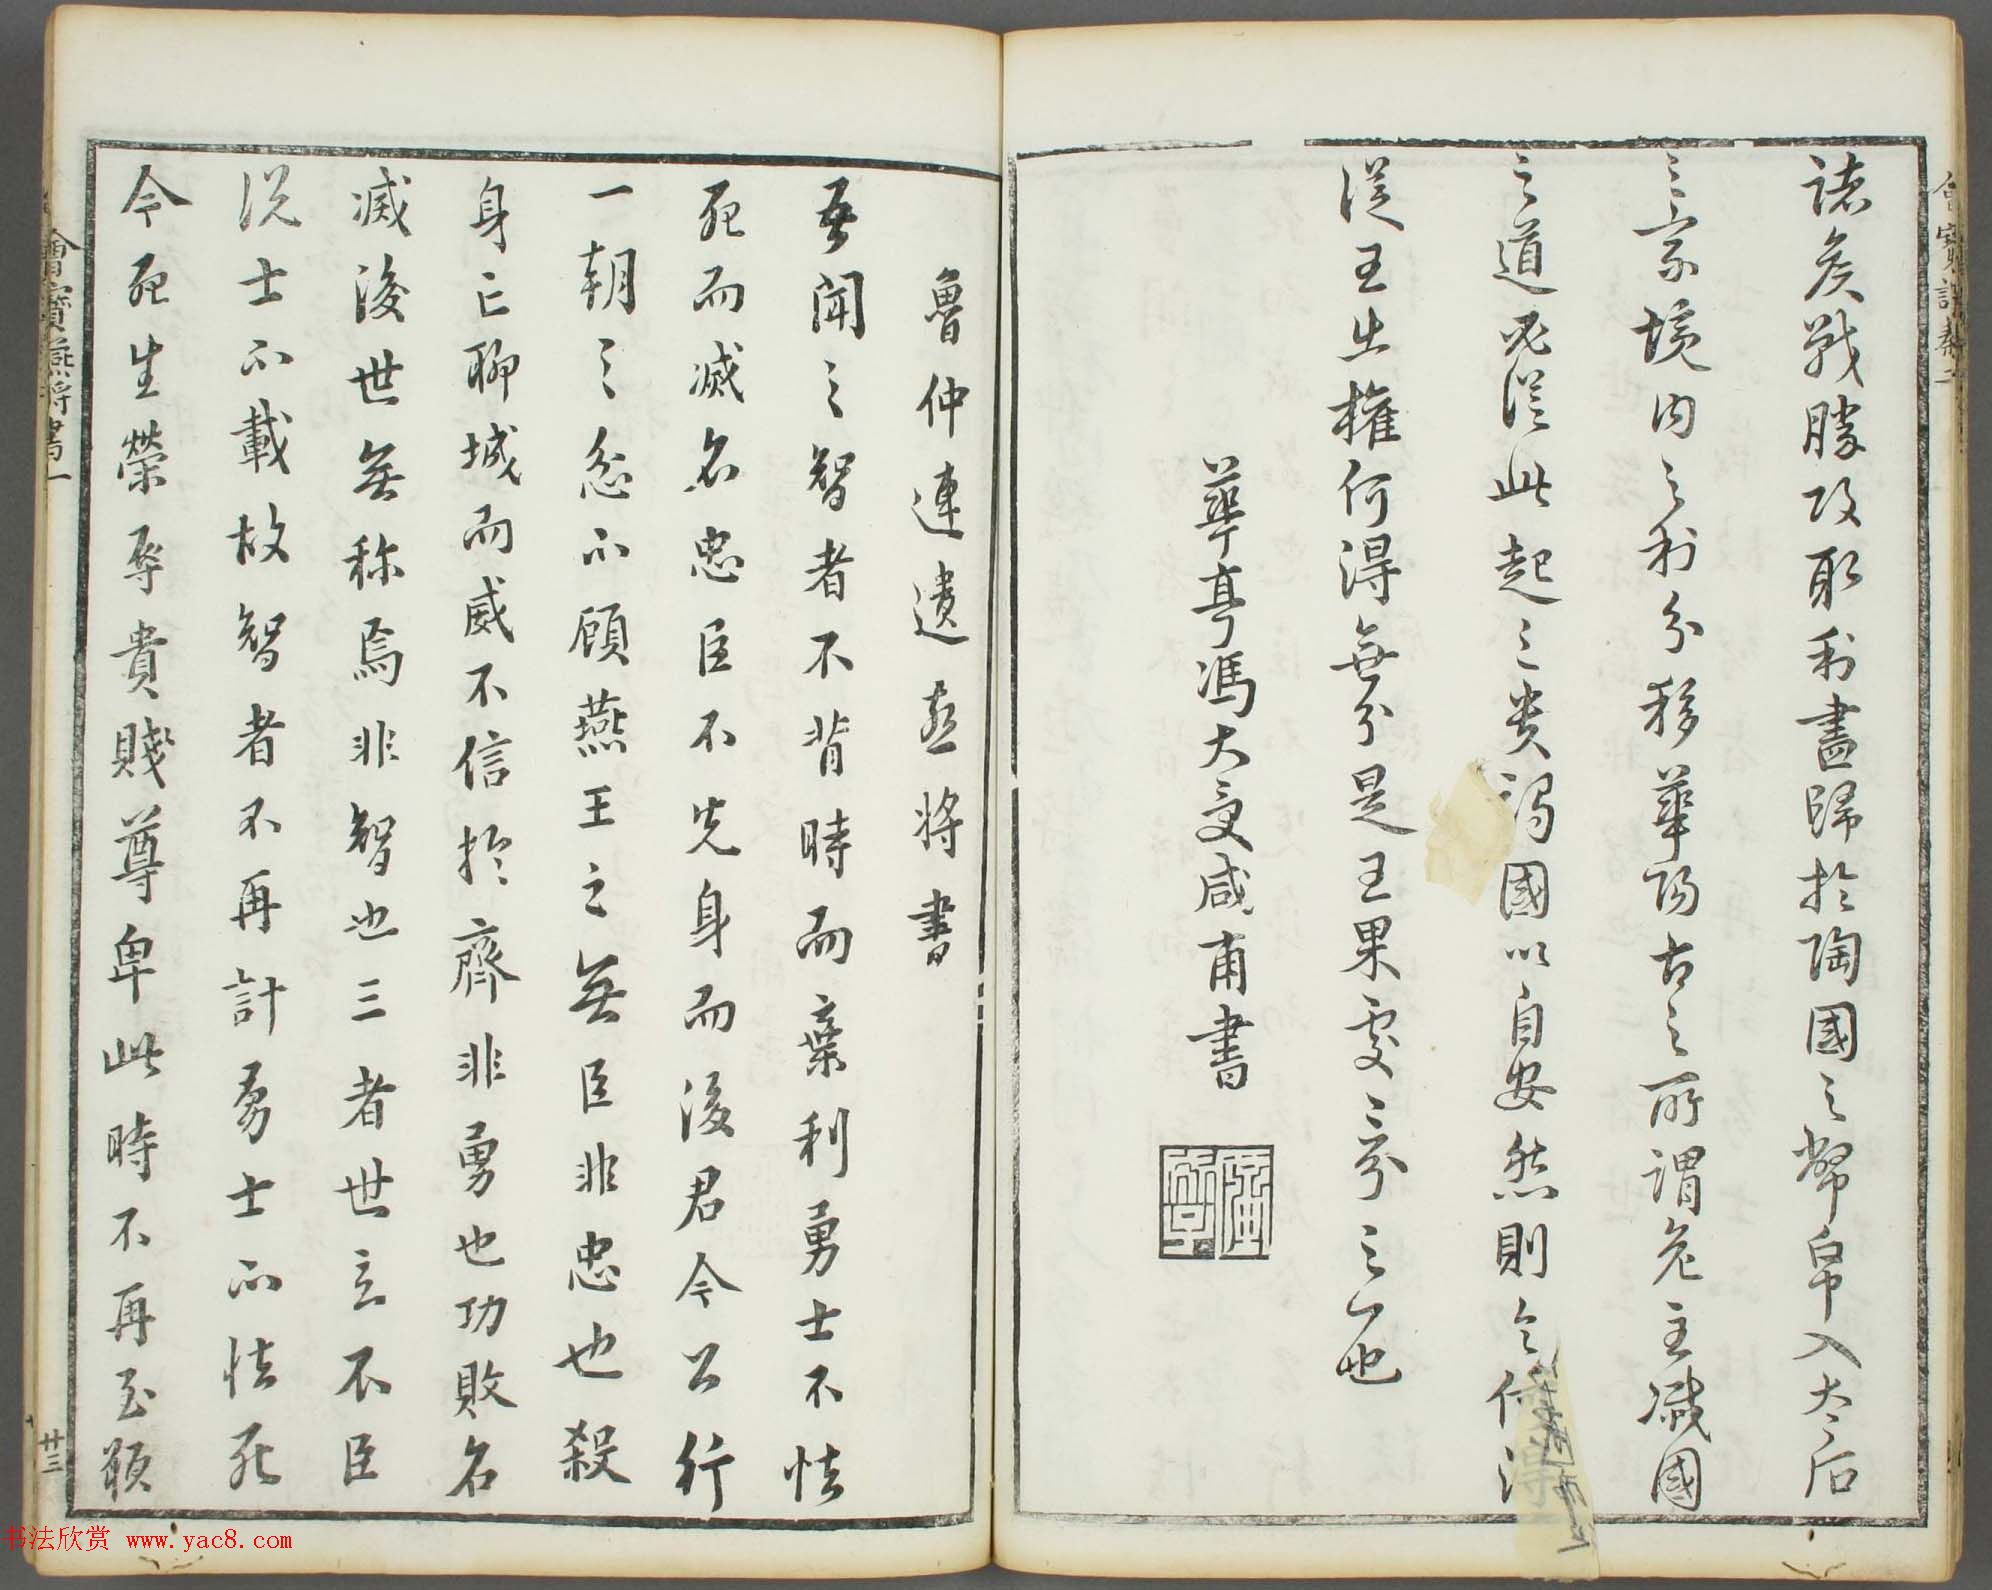 諸侯戰勝攻取利盡歸於陶國之幣帛入太后
之家境內之利分移華陽古之所謂危主滅國
之道必從此起三貴竭國以自安然則令何得
從王出權何得無分是王果處三分之一也
華亭馮大受咸甫書
魯仲連遺燕將書
吾聞之智者不背時而棄利勇士不怯
死而滅名忠臣不先身而後君今公行
一朝之忿不顧燕王之無臣非忠也殺
身亡聊城而威不信於齊非勇也功敗名
滅後世無稱焉非智也三者世主不臣
說士不載故智者不再計勇士不怯死
今死生榮辱貴賤尊卑此時不再至願
會寶燕將書一
廿三
书法欣赏 www.yac8.com